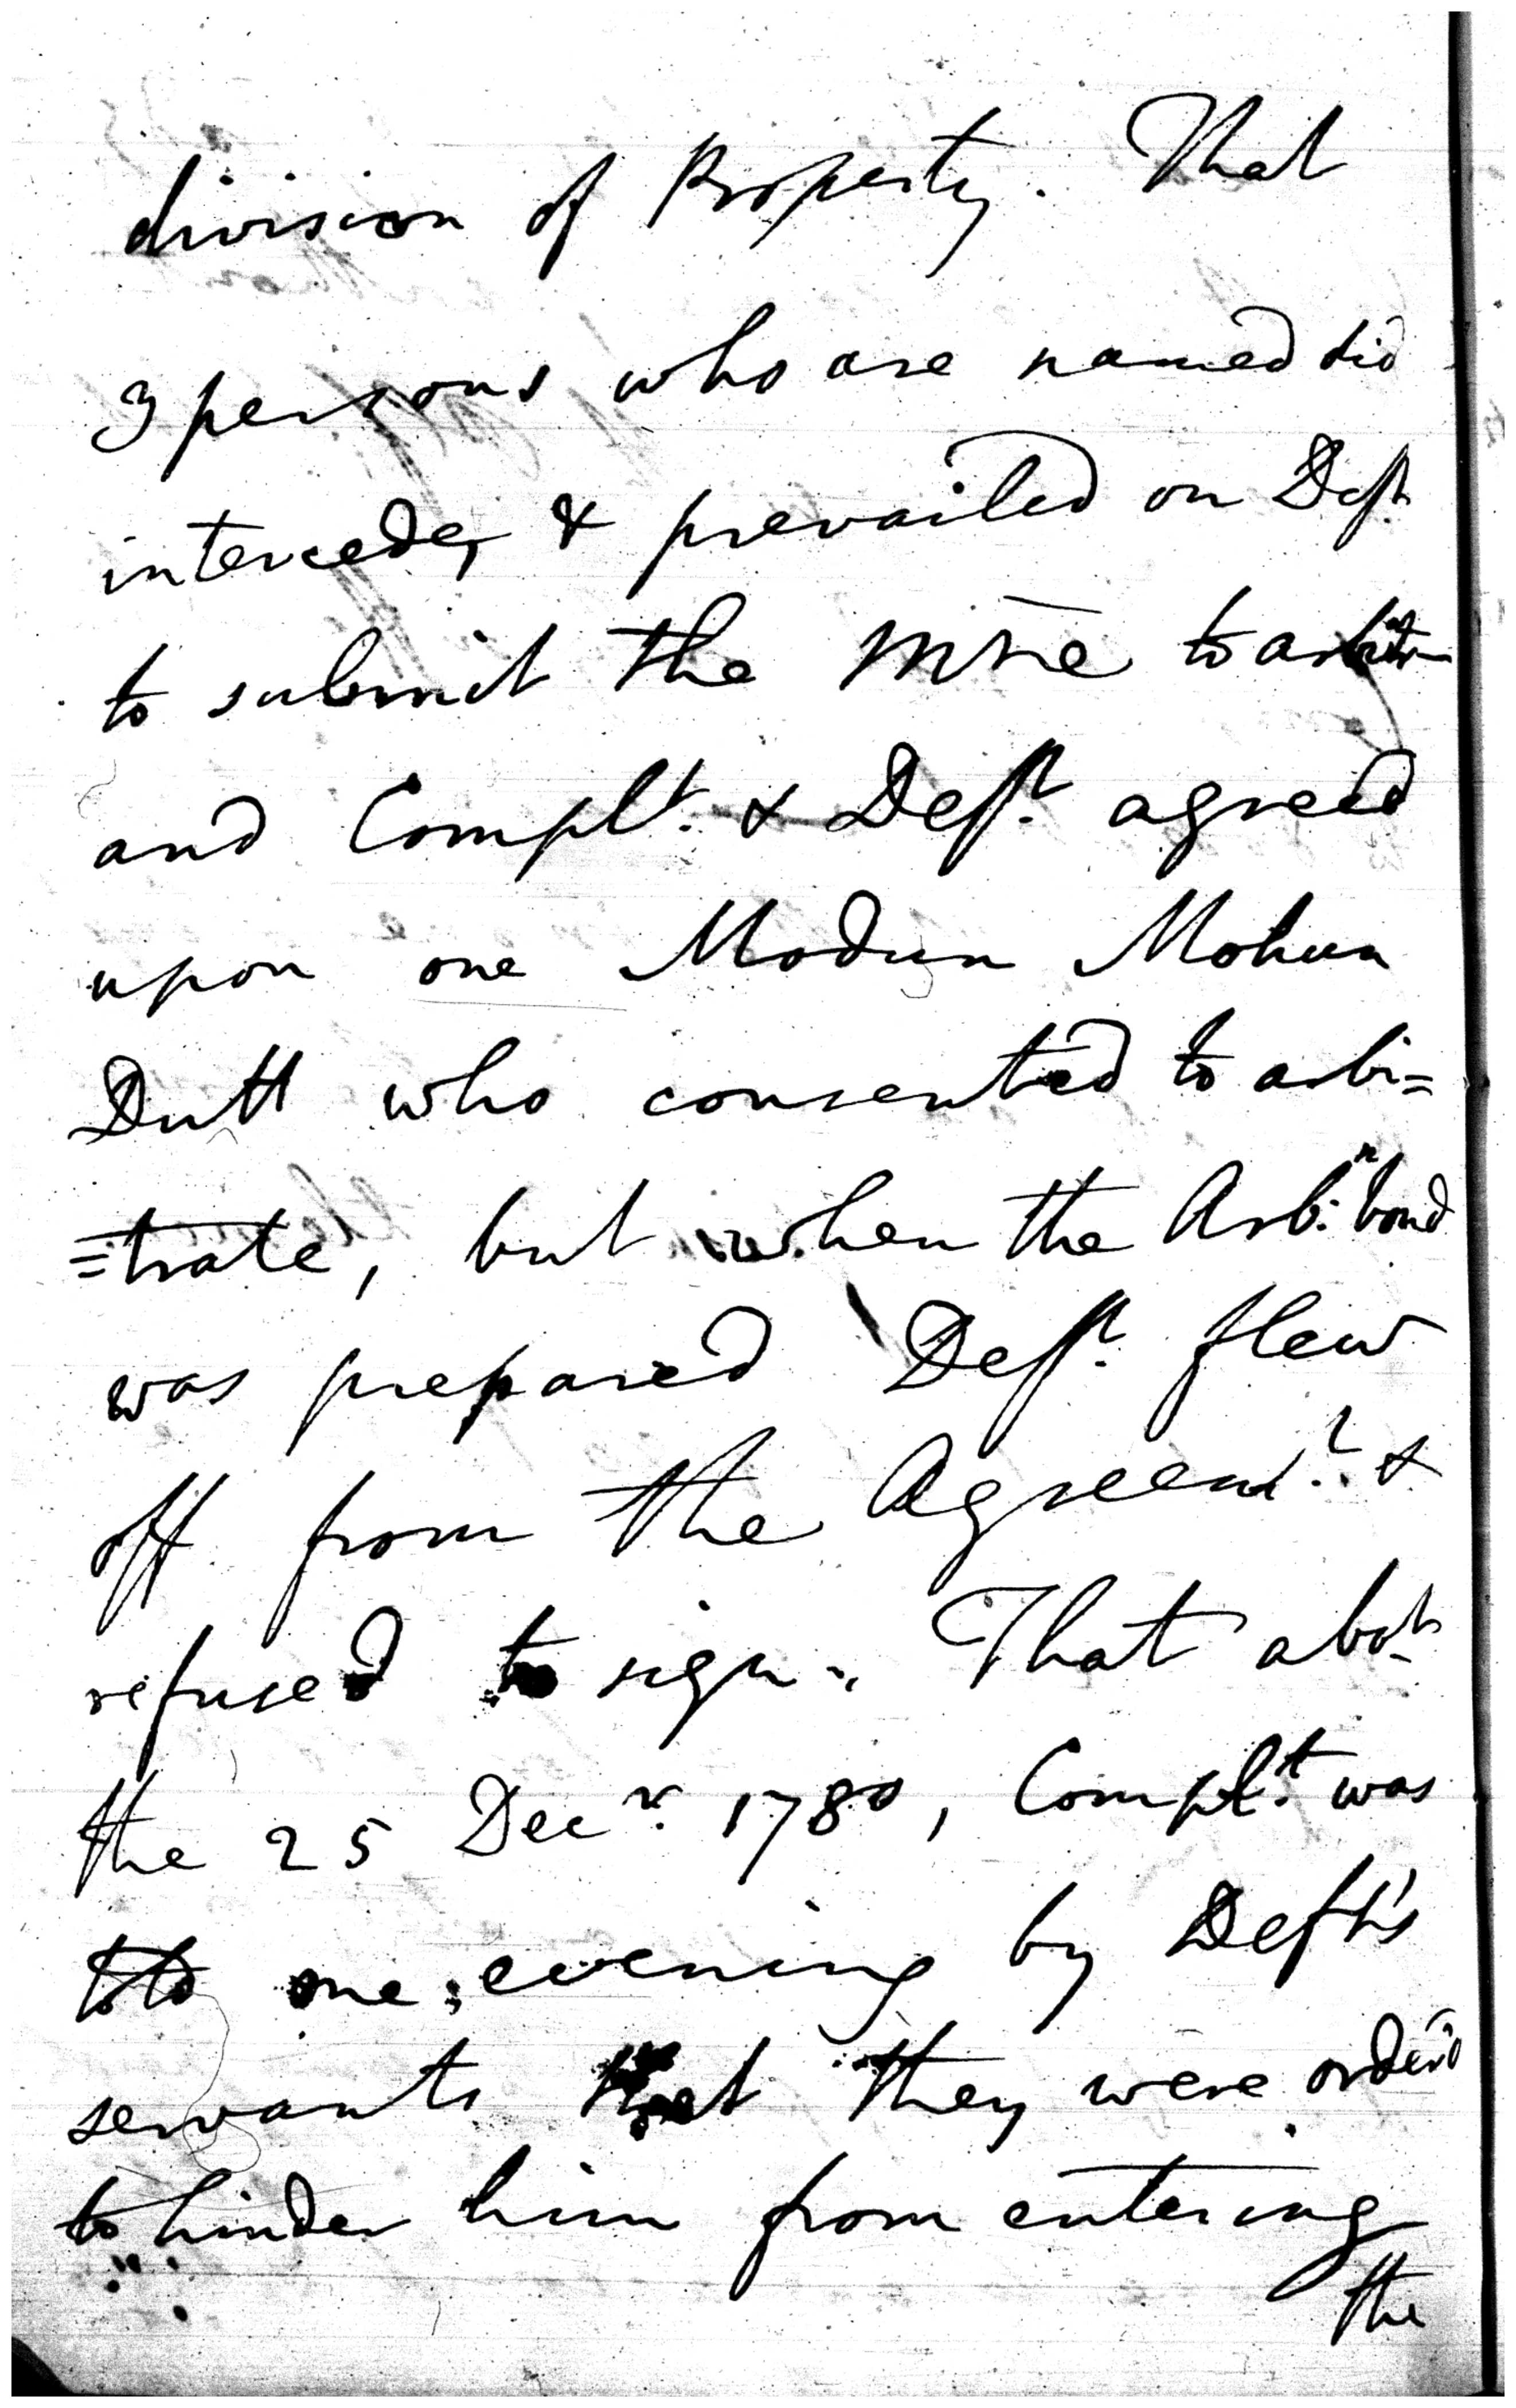 division of Property. That
3 persons who are named did
intercede, & prevailed on Deft
to submit the Mre to arbitn
and Complt. & Deft. agreed
upon one Modun Mohun
Dutt who consented to arbi=
=trate, but when the Arb:n bond
was prepared Deft. flew
off from the Agreemt. &
refused to sign. That abot
the 25 Decr. 1780, Complt. was
told one evening by Deft's
servants that they were order'd
to hinder him from entering
the